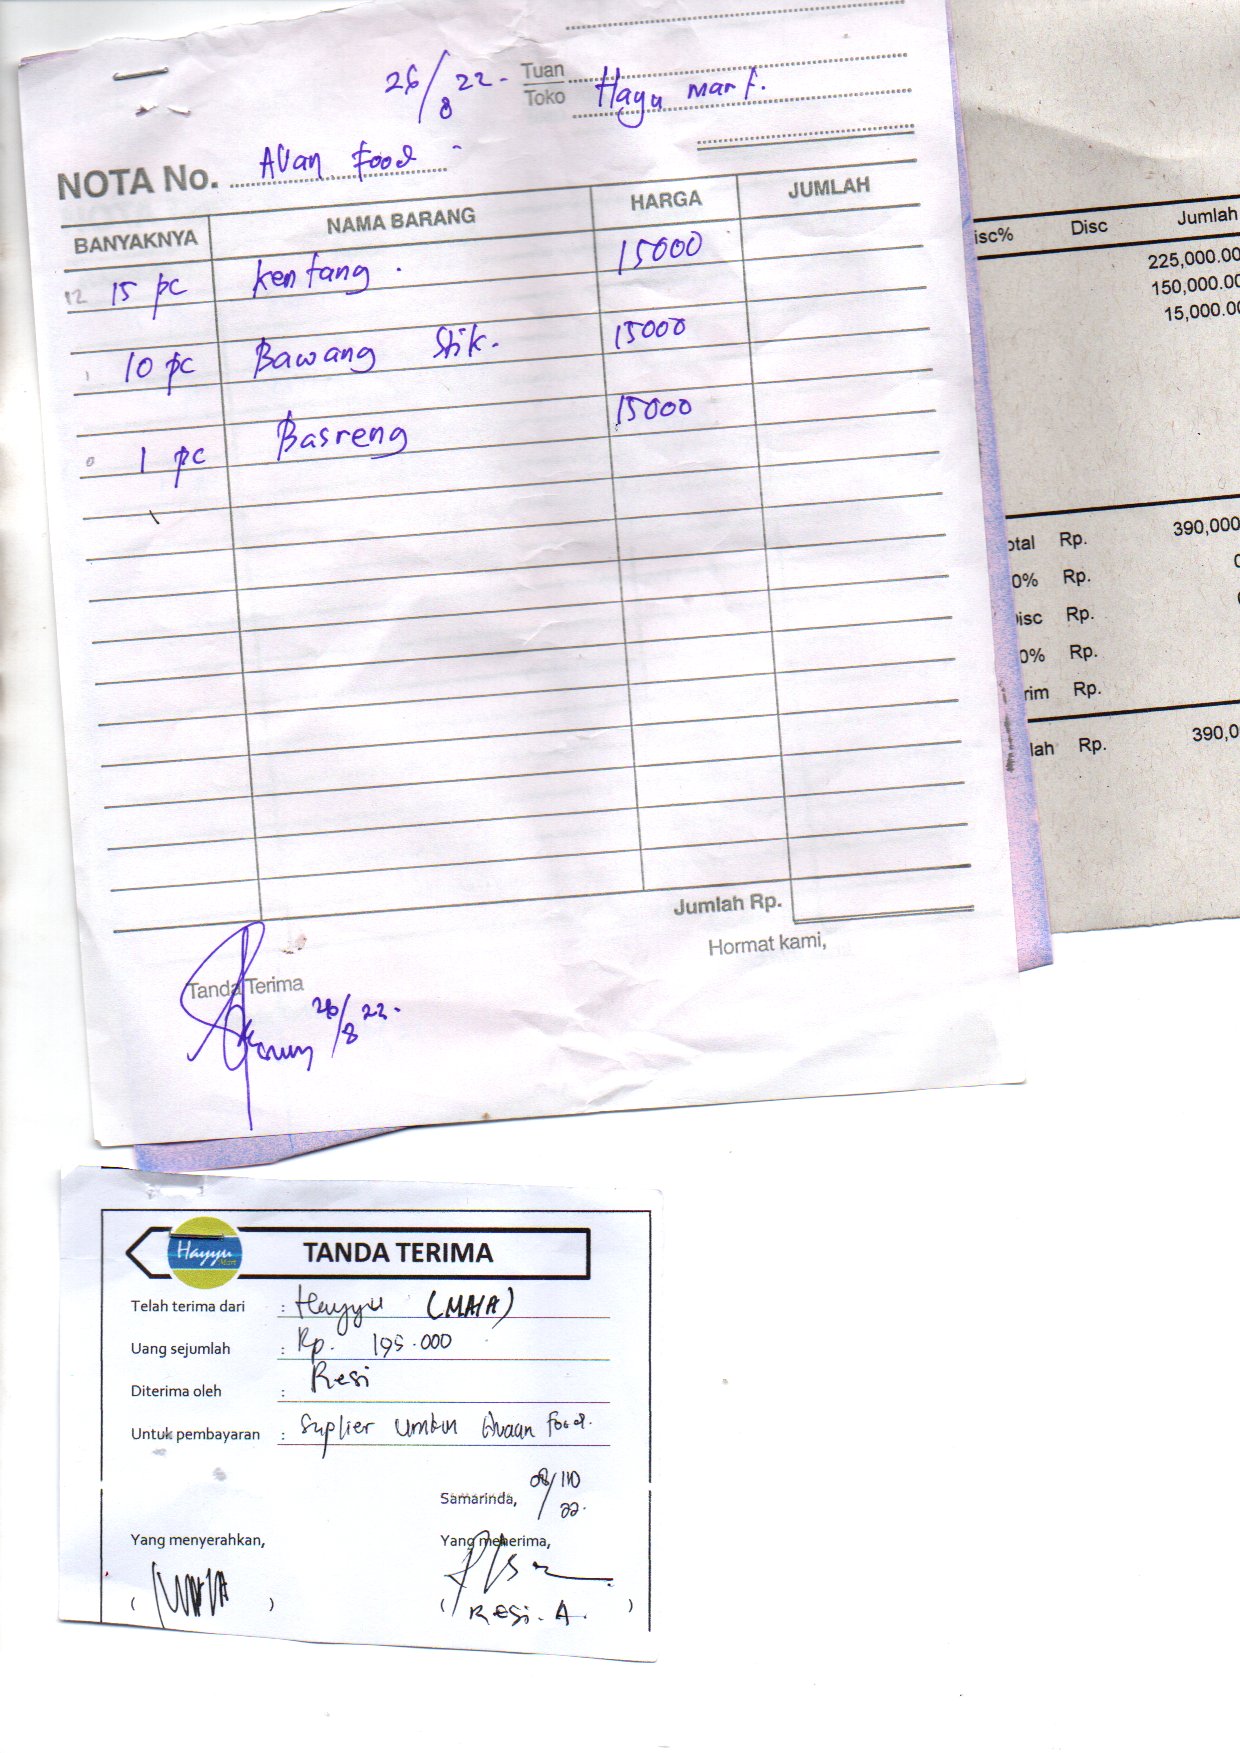 26/8 22. Tuan
Toko Hayu mart.
NOTA No. Avan food
BANYAKNYA NAMA BARANG HARGA JUMLAH
12 15 pc kentang. 15000
1 10 pc Bawang Stik. 15000
0 1 pc Basreng 15000
Jumlah Rp.
Tanda Terima Hormat kami,
26/8 22.
isc% Disc Jumlah
225,000.00
150,000.00
15,000.00
otal Rp. 390,000
0% Rp. 0
isc Rp.
0% Rp.
rim Rp.
lah Rp. 390,0
Hayyu Mart
TANDA TERIMA
Telah terima dari : Hayyu (MAIA)
Uang sejumlah : Rp. 195.000
Diterima oleh : Resi
Untuk pembayaran : Suplier umkm Avaan food.
Samarinda, 08/10 22.
Yang menyerahkan, Yang menerima,
( ) ( Resi. A. )